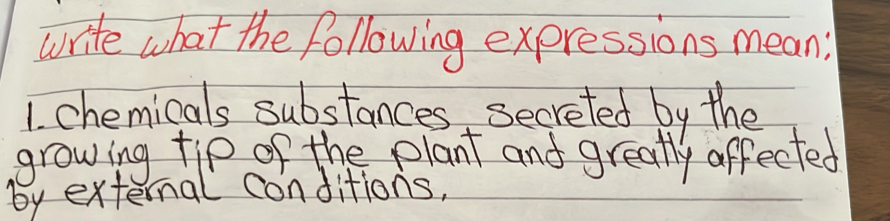 write what the following expressions mean:
1. chemicals substances secreted by the
growing tip of the plant and greatly affected
by external conditions.